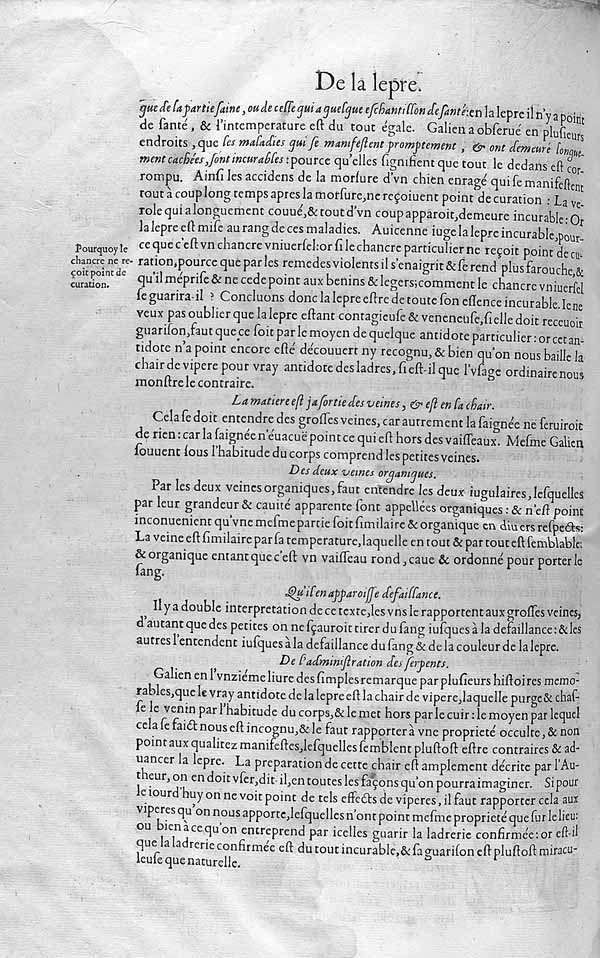 De la lepre.
que de sa partie saine, ou de celle qui a quelque eschantillon de santé: en la lepre il n'y a point
de santé, & l'intemperature est du tout égale. Galien a obserué en plusieurs
endroits, que les maladies qui se manifestent promptement, & ont demeuré longue-
ment cachées, sont incurables: pource qu'elles signifient que tout le dedans est cor-
rompu. Ainsi les accidens de la morsure d'vn chien enragé qui se manifestent
tout à coup long temps apres la morsure, ne reçoiuent point de curation: La ve-
role qui a longuement couué, & tout d'vn coup apparoit, demeure incurable: Or
la lepre est mise au rang de ces maladies. Auicenne iuge la lepre incurable, pour-
ce que c'est vn chancre vniuersel: or si le chancre particulier ne reçoit point de cu-
ration, pource que par les remedes violents il s'enaigrit & se rend plus farouche, &
qu'il méprise & ne cede point aux benins & legers; comment le chancre vniuersel
se guarira-il? Concluons donc la lepre estre de toute son essence incurable. Ie ne
veux pas oublier que la lepre estant contagieuse & veneneuse, si elle doit receuoir
guarison, faut que ce soit par le moyen de quelque antidote particulier: or cet an-
tidote n'a point encore esté découuert ny recognu, & bien qu'on nous baille la
chair de vipere pour vray antidote des ladres, si est-il que l'vsage ordinaire nous
monstre le contraire.
Pourquoy le
chancre ne re-
çoit point de
curation.
La matiere est ja sortie des veines, & est en la chair.
Cela se doit entendre des grosses veines, car autrement la saignée ne seruiroit
de rien: car la saignée n'éuacuë point ce qui est hors des vaisseaux. Mesme Galien
souuent sous l'habitude du corps comprend les petites veines.
Des deux veines organiques.
Par les deux veines organiques, faut entendre les deux iugulaires, lesquelles
par leur grandeur & cauité apparente sont appellées organiques: & n'est point
inconuenient qu'vne mesme partie soit similaire & organique en diuers respects:
La veine est similaire par sa temperature, laquelle en tout & par tout est semblable:
& organique entant que c'est vn vaisseau rond, caue & ordonné pour porter le
sang.
Qu'il en apparoisse defaillance.
Il y a double interpretation de ce texte, les vns le rapportent aux grosses veines,
d'autant que des petites on ne sçauroit tirer du sang iusques à la defaillance: & les
autres l'entendent iusques à la defaillance du sang & de la couleur de la lepre.
De l'administration des serpents.
Galien en l'vnziéme liure des simples remarque par plusieurs histoires memo-
rables, que le vray antidote de la lepre est la chair de vipere, laquelle purge & chas-
se le venin par l'habitude du corps, & le met hors par le cuir: le moyen par lequel
cela se faict nous est incognu, & le faut rapporter à vne proprieté occulte, & non
point aux qualitez manifestes, lesquelles semblent plustost estre contraires & ad-
uancer la lepre. La preparation de cette chair est amplement décrite par l'Au-
theur, on en doit vser, dit-il, en toutes les façons qu'on pourra imaginer. Si pour
le iourd'huy on ne voit point de tels effects de viperes, il faut rapporter cela aux
viperes qu'on nous apporte, lesquelles n'ont point mesme proprieté que sur le lieu:
ou bien à ce qu'on entreprend par icelles guarir la ladrerie confirmée: or est-il
que la ladrerie confirmée est du tout incurable, & sa guarison est plustost miracu-
leuse que naturelle.